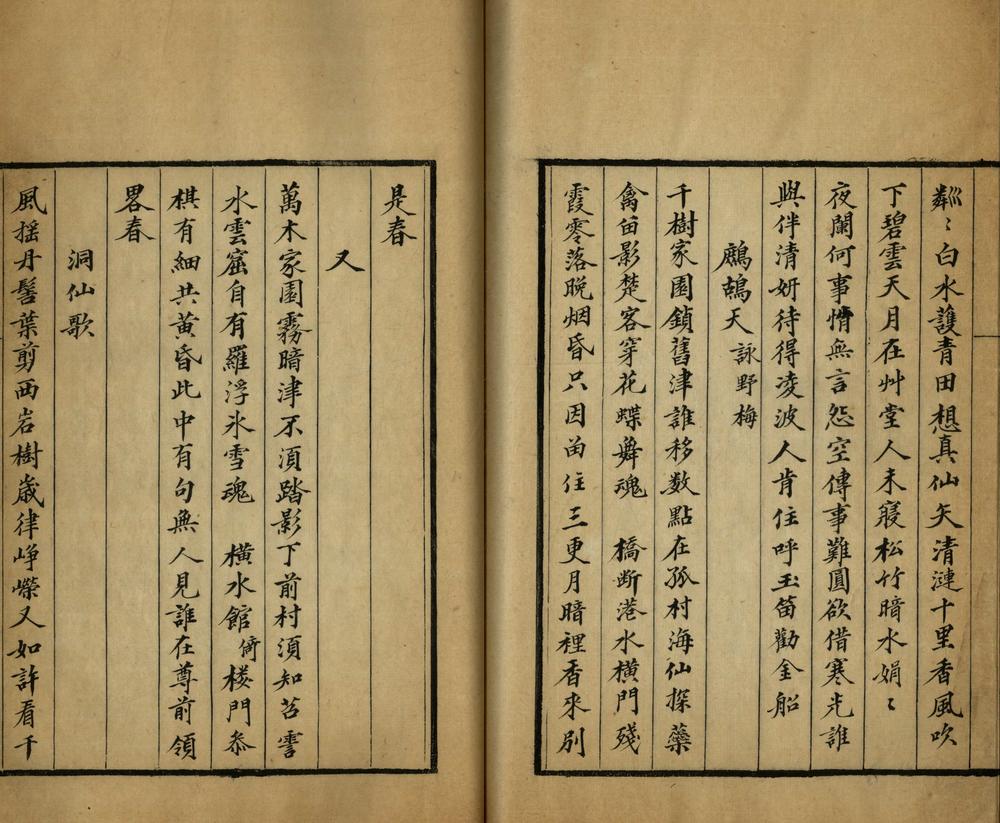 粼〻白水護青田想真仙矢清漣十里香風吹
下碧雲天月在艸堂人未寢松竹暗水娟〻
夜闌何事惰無言怨空傳事難圓欲借寒光誰
與伴清妍待得凌波人肯住呼玉笛勸金船
鷓鴣天 詠野梅
千樹家園鎖舊津誰移数點在孤村海仙探藥
禽畱影楚客穿花蝶舞魂 橋断港水横門殘
霞零落晚烟昏只因畱住三更月暗裡香來別
是春
又
萬木家園霧暗津不須踏影下前村須知苔霅
水雲窟自有羅浮氷雪魂 横水館俯楼門叅
棋有細共黄昏此中有句無人見誰在尊前領
畧春
洞仙歌
風揺丹髻葉剪西岩樹嵗律崢嶸又如許看千